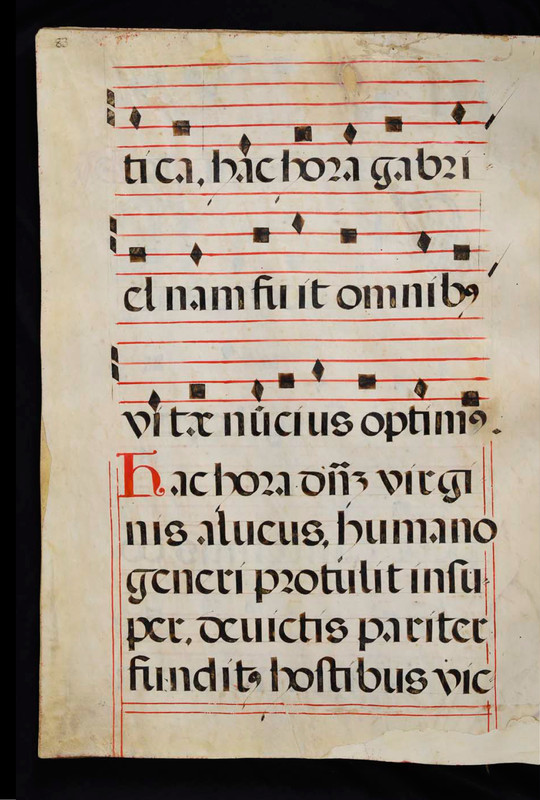 ti ca, hac hora gabri
el nam fu it omnibꝫ
vi tæ nũci us optimꝰ.
Hac hora dñꝫ virgi
nis alucus, humano
generi protulit insu
per, deuictis pariter
funditꝰ hostibus vic